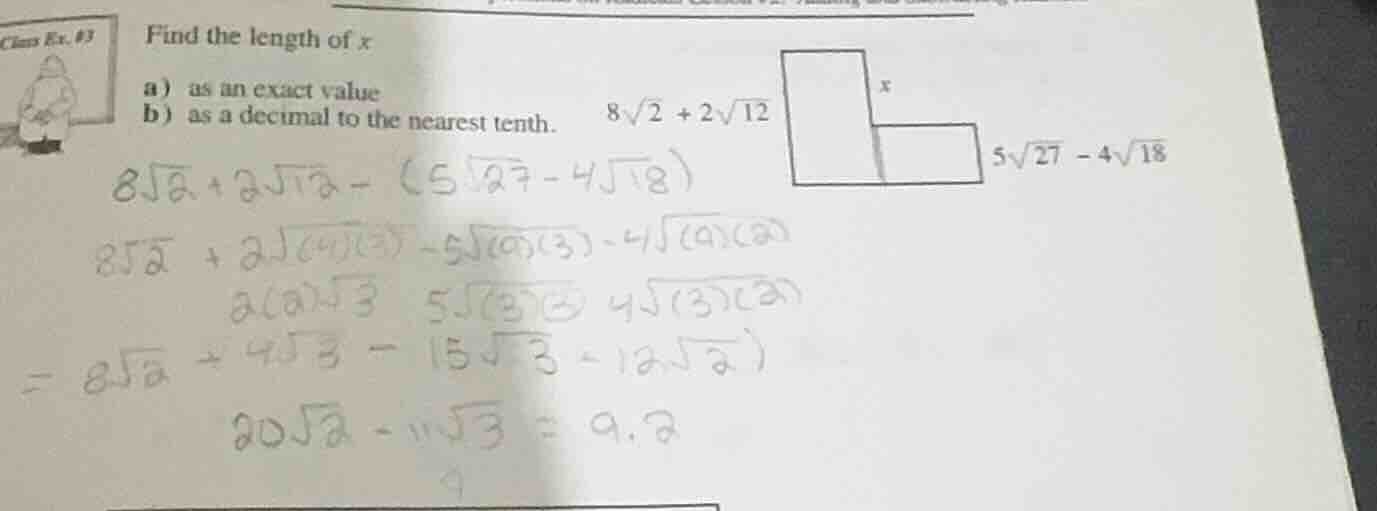 Class Ex. #3
Find the length of x
a) as an exact value
b) as a decimal to the nearest tenth.
8√2 + 2√12
x
5√27 - 4√18
8√2 + 2√12 - (5√27 - 4√18)
8√2 + 2√(4)(3) - 5√(9)(3) - 4√(9)(2)
2(2)√3 5√(3)(3) 4√(3)(2)
= 8√2 + 4√3 - 15√3 - 12√2)
20√2 - 11√3 = 9.2